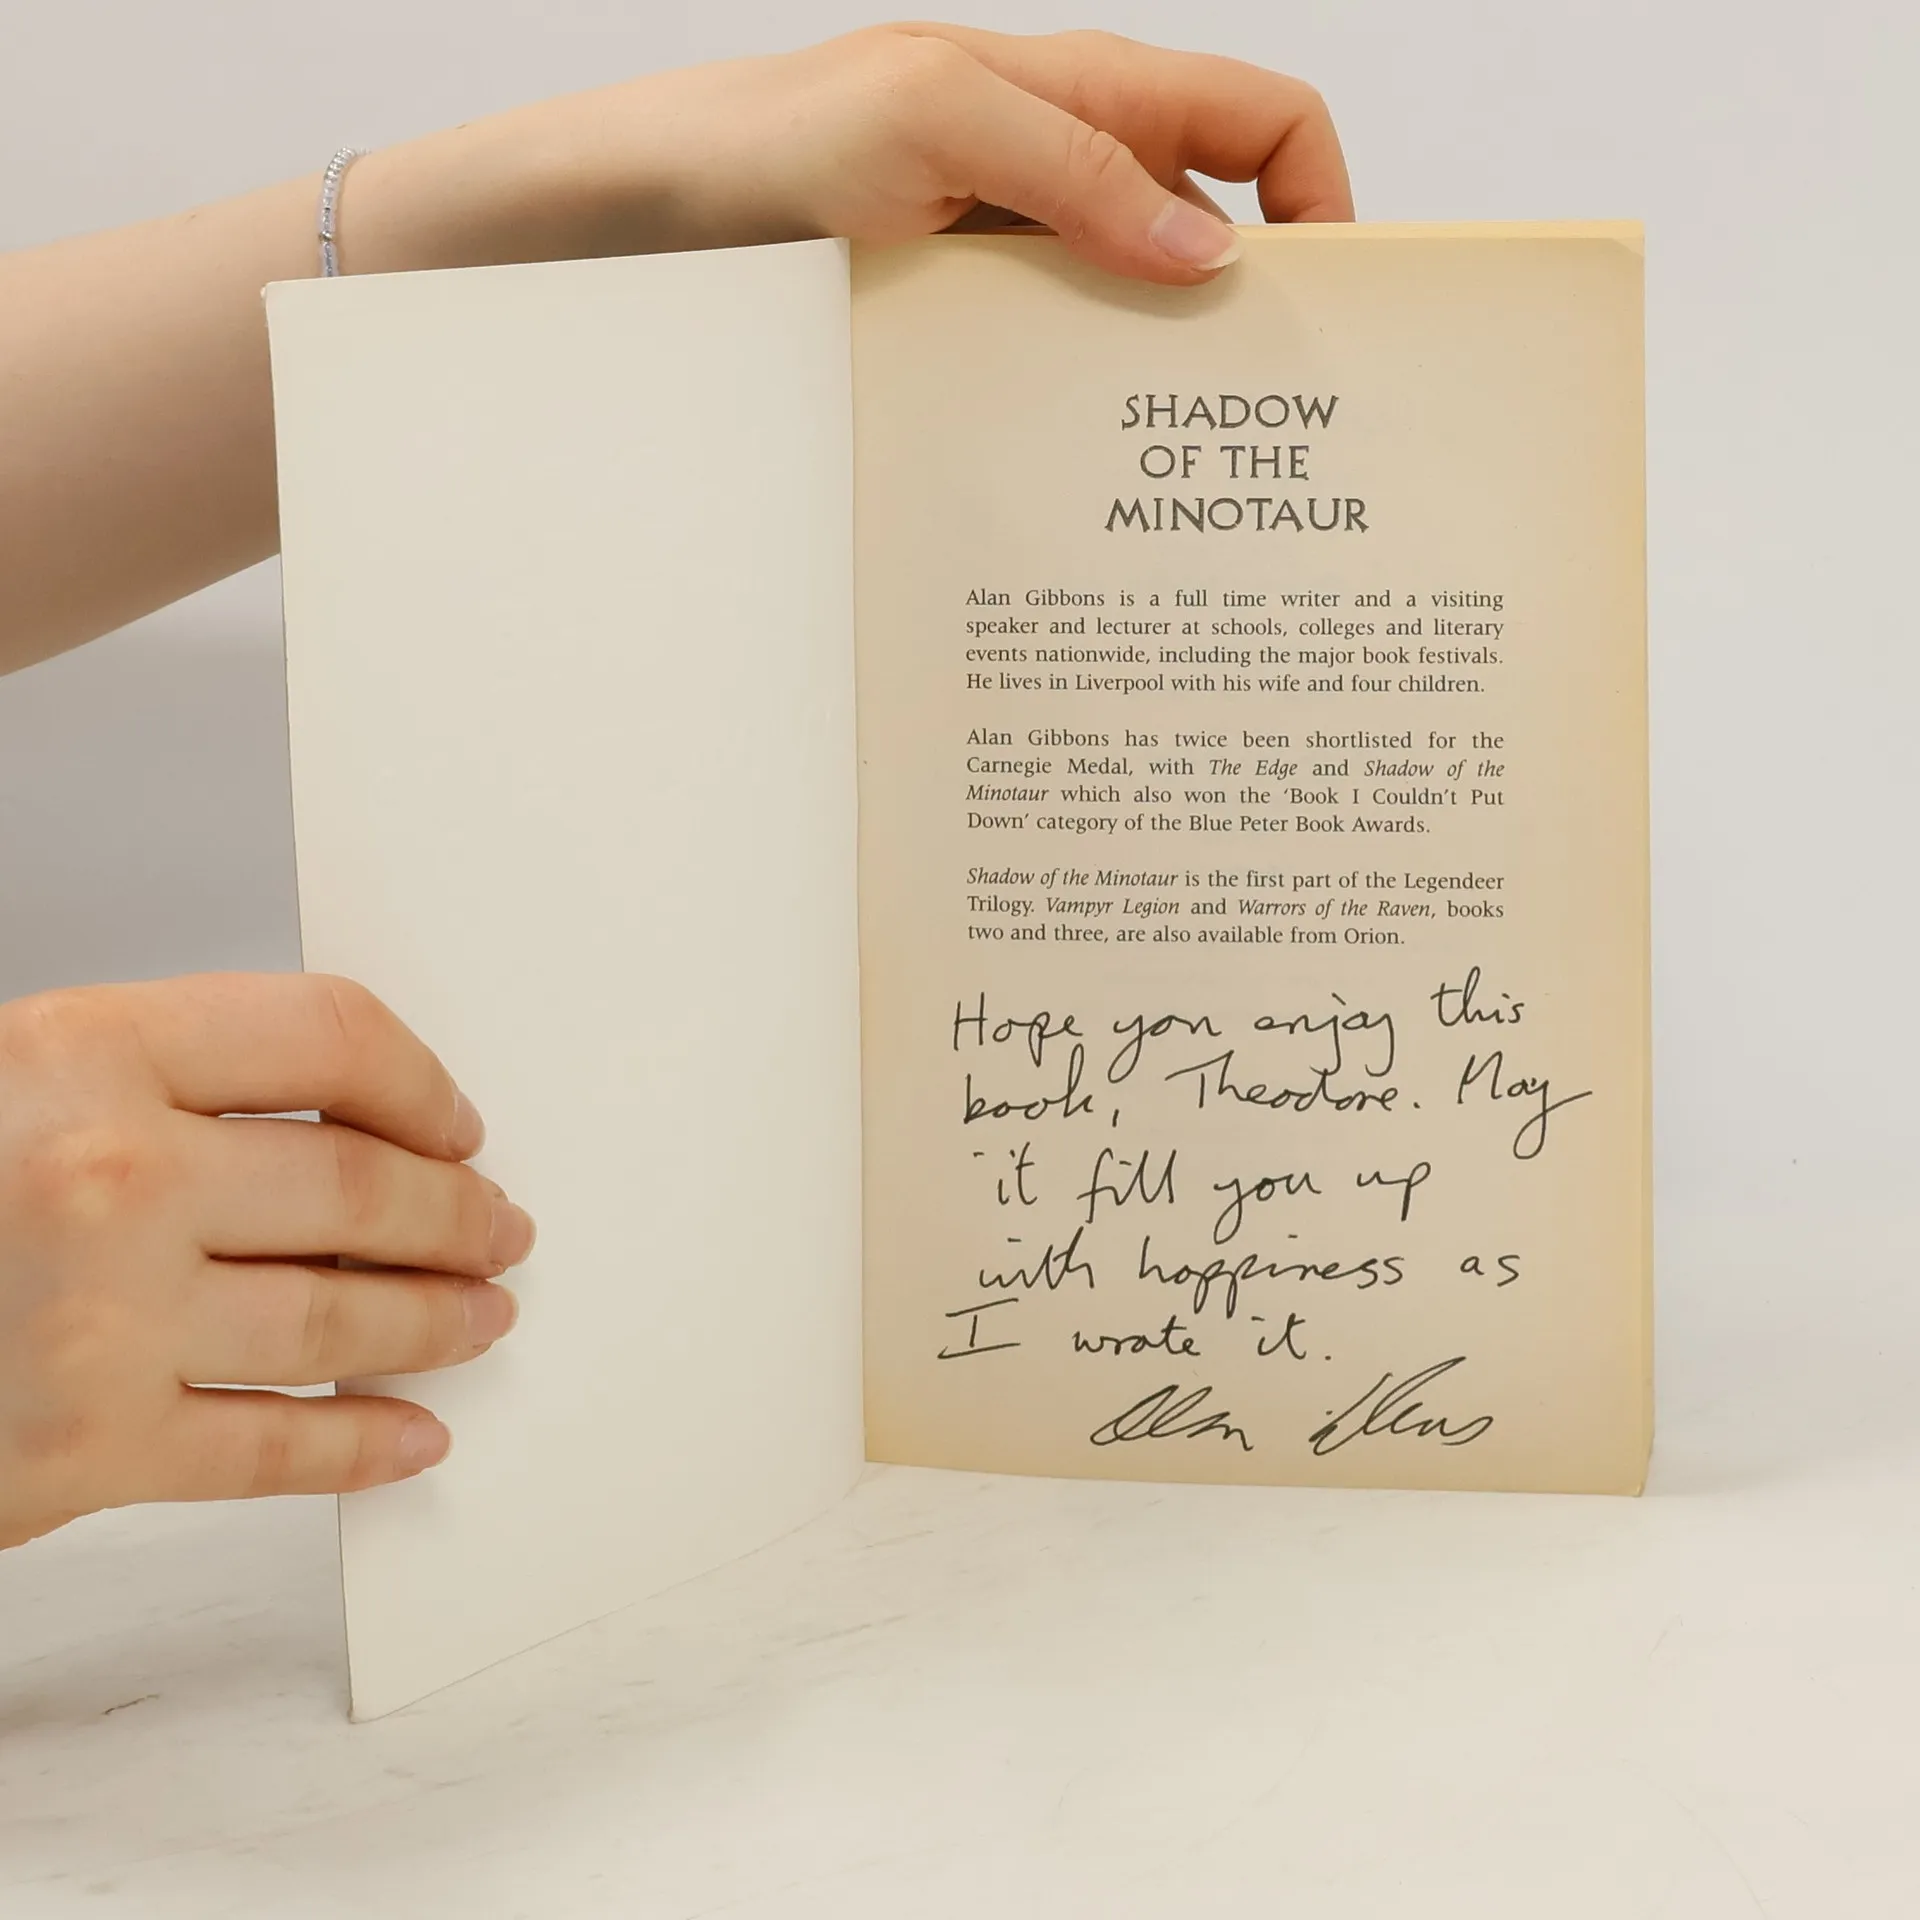 SHADOW
OF THE
MINOTAUR
Alan Gibbons is a full time writer and a visiting
speaker and lecturer at schools, colleges and literary
events nationwide, including the major book festivals.
He lives in Liverpool with his wife and four children.
Alan Gibbons has twice been shortlisted for the
Carnegie Medal, with The Edge and Shadow of the
Minotaur which also won the ‘Book I Couldn’t Put
Down’ category of the Blue Peter Book Awards.
Shadow of the Minotaur is the first part of the Legendeer
Trilogy. Vampyr Legion and Warrors of the Raven, books
two and three, are also available from Orion.
Hope you enjoy this
book, Theodore. May
it fill you up
with happiness as
I wrote it.
Alan